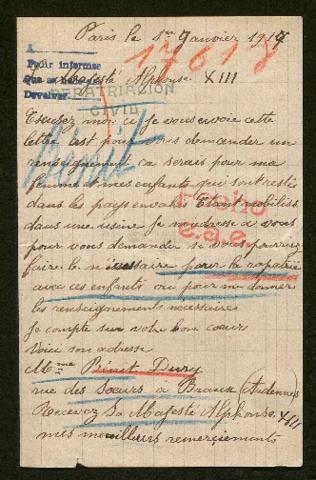 Paris le 1er Janvier 1917
17617
A
Pedir informes
Que se
Devolver
Majesté Alphonse XIII
REPATRIACION
CIVIL
Escusez moi si je vous envoie cette
lettre c'est pour vous demander un
renseignement ca serais pour ma
femme et mes enfants qui sont restés
dans les pays envahis Etant mobilisé
dans une usine Je m'adresse a vous
pour vous demander si vous pourriez
faire le nécessaire pour la rapatrié
avec ces enfants ou pour me donner
les renseignements nécessaires
Je compte sur votre bon coeurs
Voici son adresse
Mme Binet Dury
rue des Soeurs à Braux (Ardennes)
Recevez Sa Majesté Alphonse XIII
mes meuilleurs remerciements
Binet